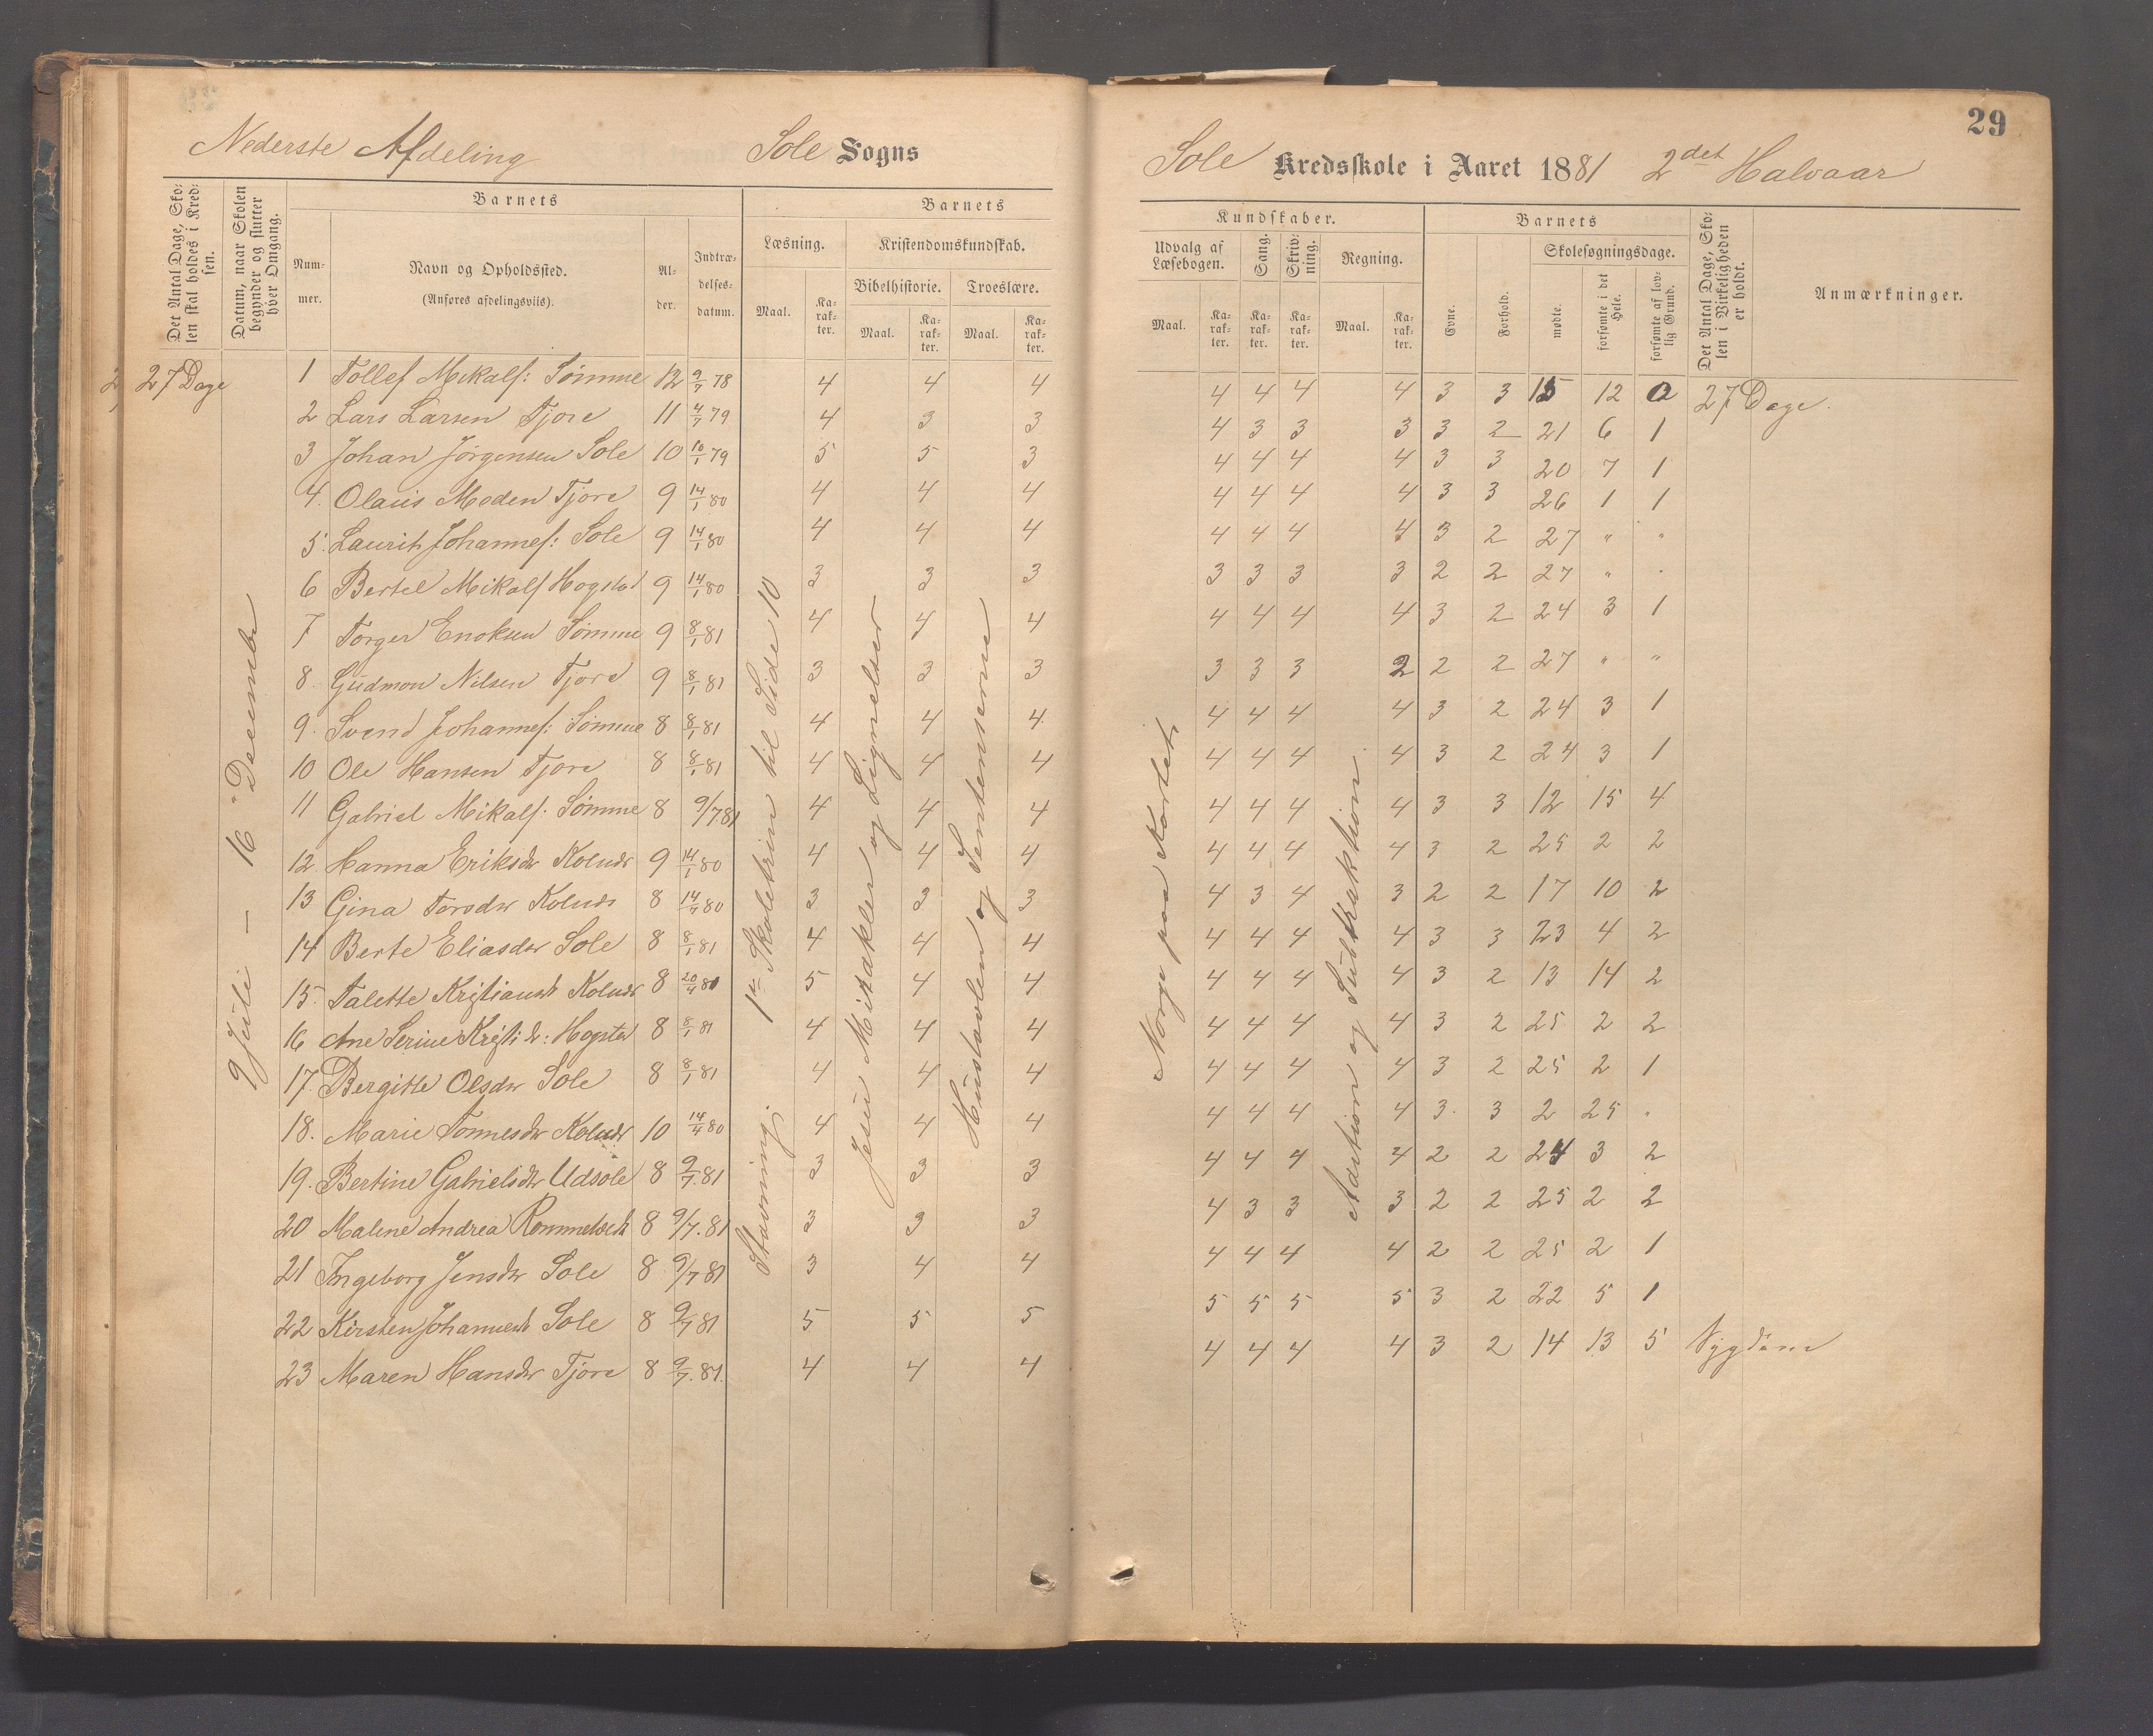 29
Nederste Afdeling Sole Sogns
Sole Kredsskole i Aaret 1881 2det Halvaar
Det Antal Dage, Sko-
len skal holdes i Kred-
sen.
Datum, naar Skolen
begynder og slutter
hver Omgang.
Barnets
Num-
mer.
Navn og Opholdssted.
(Anføres afdelingsviis).
Al-
der.
Indtræ-
delses-
datum.
Barnets
Læsning.
Maal.
Ka-
rak-
ter.
Kristendomskundskab.
Bibelhistorie.
Maal.
Ka-
rak-
ter.
Troeslære.
Maal.
Ka-
rak-
ter.
Kundskaber.
Udvalg af
Læsebogen.
Maal.
Ka-
rak-
ter.
Sang.
Ka-
rak-
ter.
Skriv-
ning.
Ka-
rak-
ter.
Regning.
Maal.
Ka-
rak-
ter.
Barnets
Evne.
Forhold.
Skolesøgningsdage.
mødte.
forsømte i det
Hele.
forsømte af lov-
lig Grund.
Det Antal Dage, Sko-
len i Virkeligheden
er holdt.
Anmærkninger.
27 Dage
9 Juli - 16 Decembr
Stavning; 1ste Skoletrin til Side 10
Jesu Mirakler og Lignelser
Hustavlen og Sentenserne
Norge paa Kartet
Adition og Subtraktion
1 Tollef Mikals: Sømme 12 9/7 78 4 4 4 4 4 4 4 3 3 15 12 0 27 Dage.
2 Lars Larsen Tjore 11 4/7 79 4 3 3 4 3 3 3 3 2 21 6 1
3 Johan Jørgensen Sole 10 10/1 79 5 5 3 4 4 4 4 3 3 20 7 1
4. Olaus Moden Tjore 9 14/1 80 4 4 4 4 4 4 4 3 3 26 1 1
5. Laurits Johannes: Sole 9 14/1 80 4 4 4 4 4 4 4 3 2 27 " "
6 Bertel Mikals Hogstad 9 14/1 80 3 3 3 3 3 3 3 2 2 27 " "
7 Torger Enoksen Sømme 9 8/1 81 4 4 4 4 4 4 4 3 2 24 3 1
8 Gudmon Nilsen Tjore 9 8/1 81 3 3 3 3 3 3 2 2 2 27 " "
9. Svend Johannes: Sømme 8 8/1 81 4 4 4 4 4 4 4 3 2 24 3 1
10 Ole Hansen Tjore 8 8/1 81 4 4 4 4 4 4 4 3 2 24 3 1
11 Gabriel Mikals: Sømme 8 9/7 81 4 4 4 4 4 4 4 3 3 12 15 4
12 Hanna Eriksdr Kolnds 9 14/1 80 4 4 4 4 4 4 4 3 2 25 2 2
13 Gina Torsdr Kolnds 8 14/7 80 3 3 3 4 3 4 3 2 2 17 10 2
14 Berte Eliasdr Sole 8 8/1 81 4 4 4 4 4 4 4 3 3 23 4 2
15 Talette Kristiansdt Kolnds 8 20/4 80 5 4 4 4 4 4 4 3 2 13 14 2
16 Ane Serine Kristi dr: Hogstad 8 8/1 81 4 4 4 4 4 4 4 3 2 25 2 2
17. Bergitte Olsdr Sole 8 8/1 81 4 4 4 4 4 4 4 3 2 25 2 1
18. Marie Tonnesdr Kolnds 10 14/4 80 4 4 4 4 4 4 4 3 3 2 25 "
19. Bertine Gabrielsdr Udsole 8 9/7. 81 3 3 3 4 4 4 4 2 2 24 3 2
20 Maline Andrea Rommetvedt 8 9/7. 81 3 3 3 4 3 3 3 2 2 25 2 2
21 Ingeborg Jensdr Sole 8 9/7 81 3 4 4 4 4 4 4 2 2 25 2 1
22 Kirsten Johannesdt Sole 8 9/7 81 5 5 5 5 5 5 5 3 2 22 5 1
23 Maren Hansdr Tjore 8 9/7. 81. 4 4 4 4 4 4 4 3 2 14 13 5 Sygdom